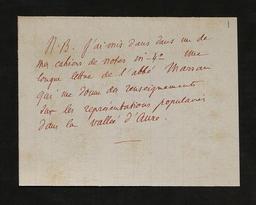 1
N.B. J'ai mis dans dans un de
mes cahiers de notes in-4º une
longue lettre de l'abbé Marsan
qui me donne des renseignements
sur les représentations populaires
dans la vallée d'Aure.